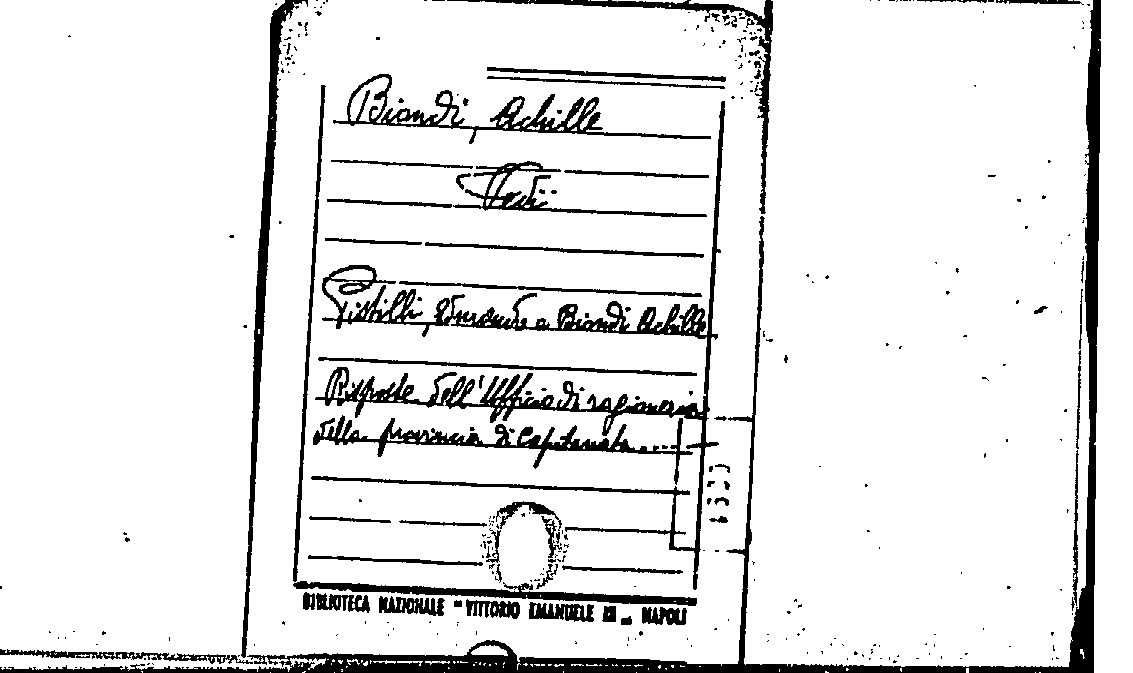 Biondi, Achille
Vedi:
Pistilli, Edmondo e Biondi Achille
Risposte dell'Ufficio di ragioneria
della provincia di Capitanata.....
BIBLIOTECA NAZIONALE "VITTORIO EMANUELE III" - NAPOLI